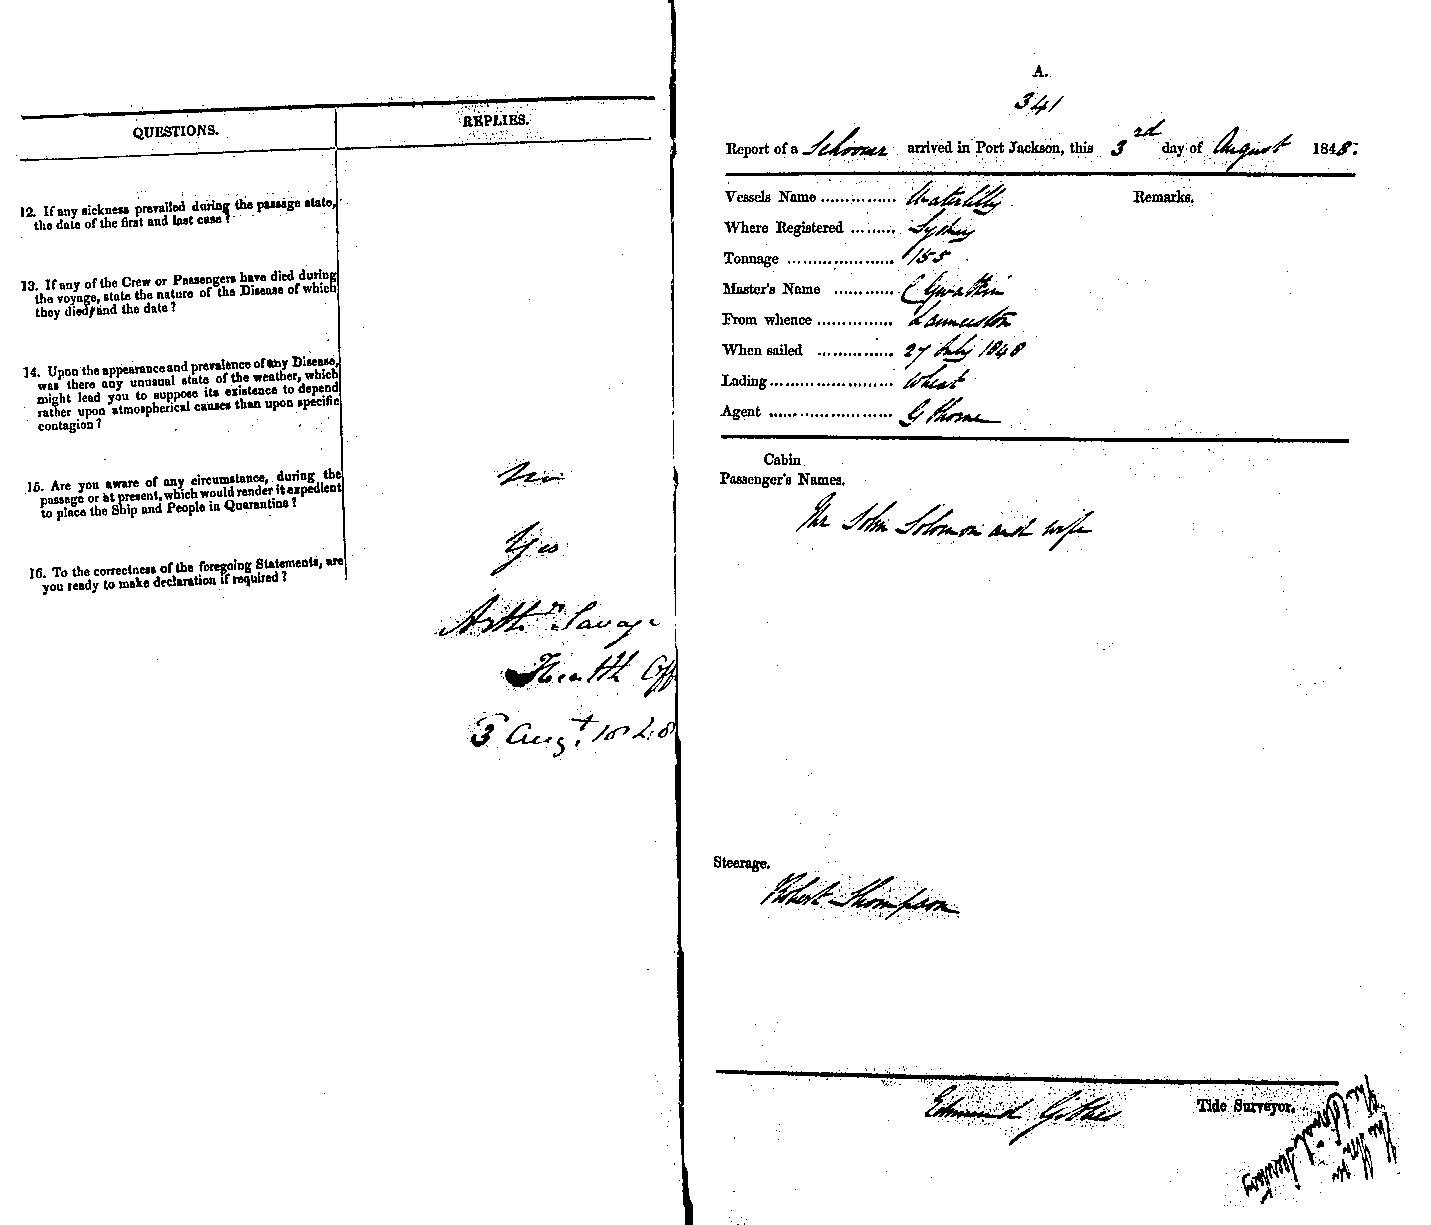 QUESTIONS. REPLIES.
12. If any sickness prevailed during the passage state,
the date of the first and last case?
13. If any of the Crew or Passengers have died during
the voyage, state the nature of the Disease of which
they died, and the date?
14. Upon the appearance and prevalence of any Disease,
was there any unusual state of the weather, which
might lead you to suppose its existence to depend
rather upon atmospherical causes than upon specific
contagion?
15. Are you aware of any circumstance, during the
passage or at present, which would render it expedient
to place the Ship and People in Quarantine?
No
16. To the correctness of the foregoing Statements, are
you ready to make declaration if required?
Yes
Arthr Savage
Health Off
3 Augt. 1848
A.
341
Report of a Schooner arrived in Port Jackson, this 3rd day of August 1848.
Vessels Name ............... Waterlilly Remarks.
Where Registered ......... Sydney
Tonnage ..................... 155
Master's Name ............ C Gwatkin
From whence ............... Launceston
When sailed ............... 27 July 1848
Lading ........................ Wheat
Agent ........................ G Thorne
Cabin
Passenger's Names.
Mr John Solomon and wife
Steerage.
Robert Thompson
Edmund Tide Surveyor.
The Hon
The Colonial Secretary